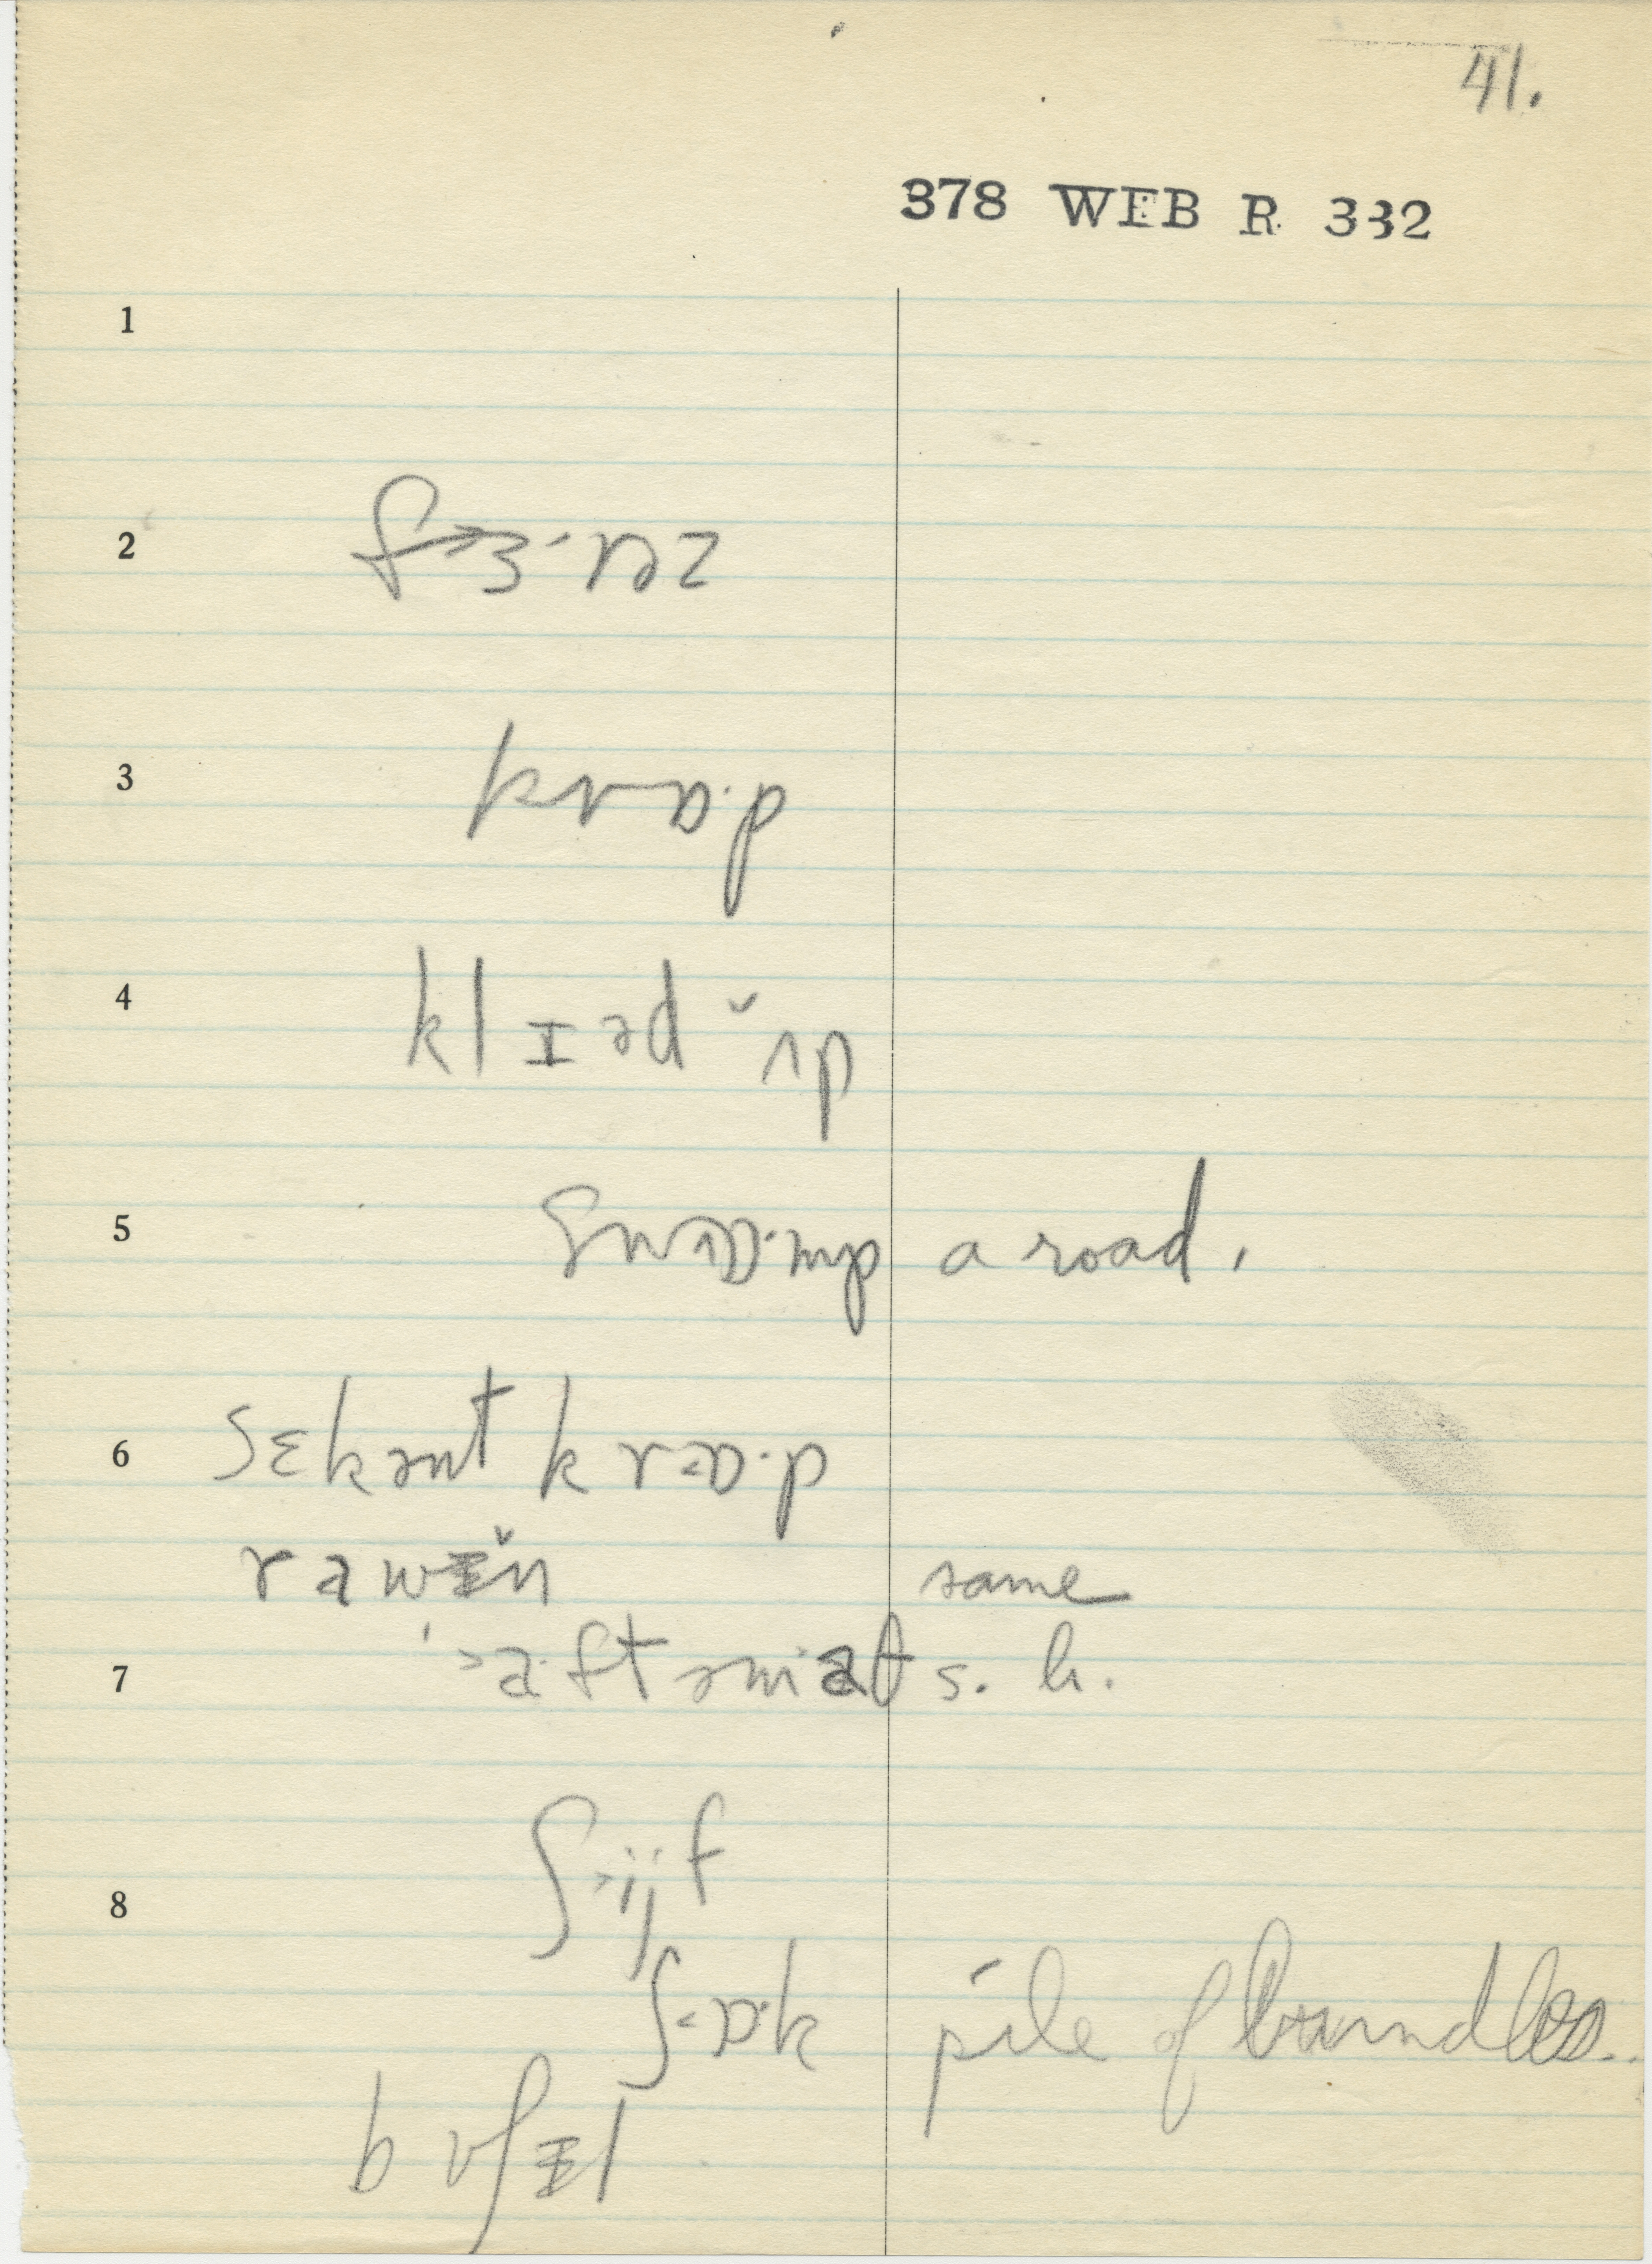 41.
378 WEB R 332
1
2 f→ɜ·nəz
3 krɒ·p
4 klɪəd ˇʌp
5 swɒ·mp a road.
6 sɛkənt krɒ·p
rawɪ̌n same
7 ˈ>a·ftəmat s. h.
8 ʃ>ijf
ʃ<ɒ·k pile of bundles..
bʊʃɪl